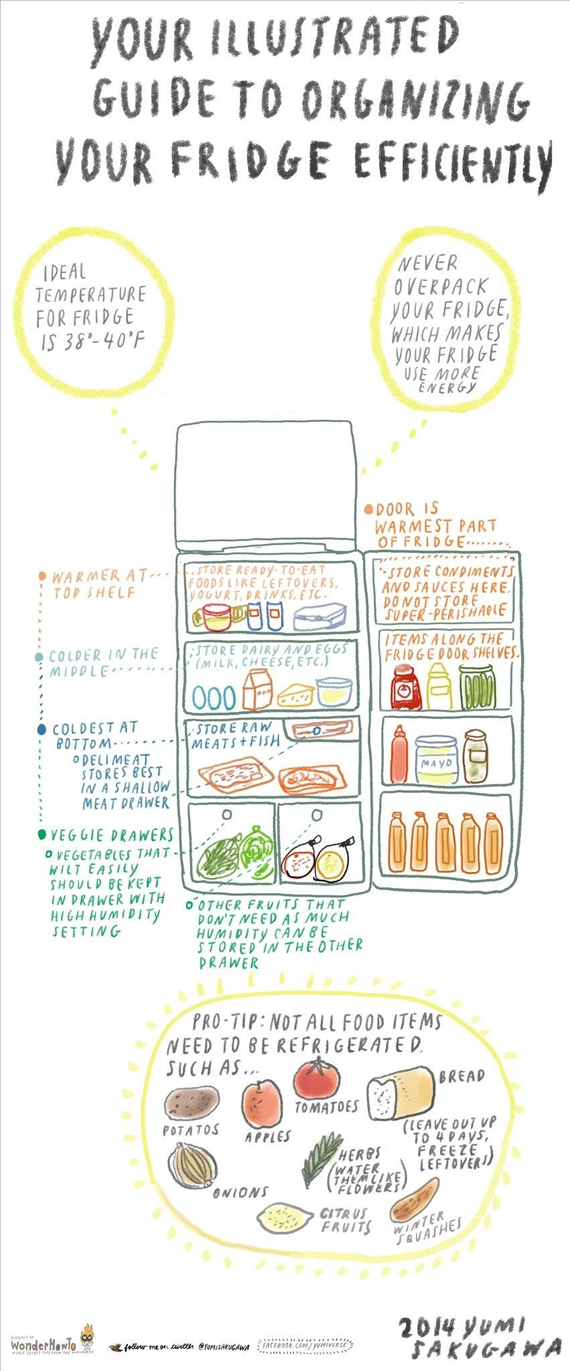 YOUR ILLUSTRATED
GUIDE TO ORGANIZING
YOUR FRIDGE EFFICIENTLY
IDEAL
TEMPERATURE
FOR FRIDGE
IS 38°-40°F
NEVER
OVERPACK
YOUR FRIDGE,
WHICH MAKES
YOUR FRIDGE
USE MORE
ENERGY
DOOR IS
WARMEST PART
OF FRIDGE
WARMER AT
TOP SHELF
STORE READY-TO-EAT
FOODS LIKE LEFTOVERS,
YOGURT, DRINKS, ETC.
-STORE CONDIMENTS
AND SAUCES HERE.
DO NOT STORE
SUPER-PERISHABLE
ITEMS ALONG THE
FRIDGE DOOR SHELVES.
COLDER IN THE
MIDDLE
STORE DAIRY AND EGGS
(MILK, CHEESE, ETC.)
COLDEST AT
BOTTOM
STORE RAW
MEATS + FISH
DELI MEAT
STORES BEST
IN A SHALLOW
MEAT DRAWER
MAYO
VEGGIE DRAWERS
VEGETABLES THAT
WILT EASILY
SHOULD BE KEPT
IN DRAWER WITH
HIGH HUMIDITY
SETTING
OTHER FRUITS THAT
DON'T NEED AS MUCH
HUMIDITY CAN BE
STORED IN THE OTHER
DRAWER
PRO-TIP: NOT ALL FOOD ITEMS
NEED TO BE REFRIGERATED.
SUCH AS...
POTATOS
APPLES
TOMATOES
BREAD
(LEAVE OUT UP
TO 4 DAYS,
FREEZE
LEFTOVERS)
ONIONS
HERBS
(WATER
THEM LIKE
FLOWERS)
CITRUS
FRUITS
WINTER
SQUASHES
WonderHowTo
follow me on twitter @YUMISAKUGAWA
FACEBOOK.COM/YUMIVERSE
2014 YUMI
SAKUGAWA